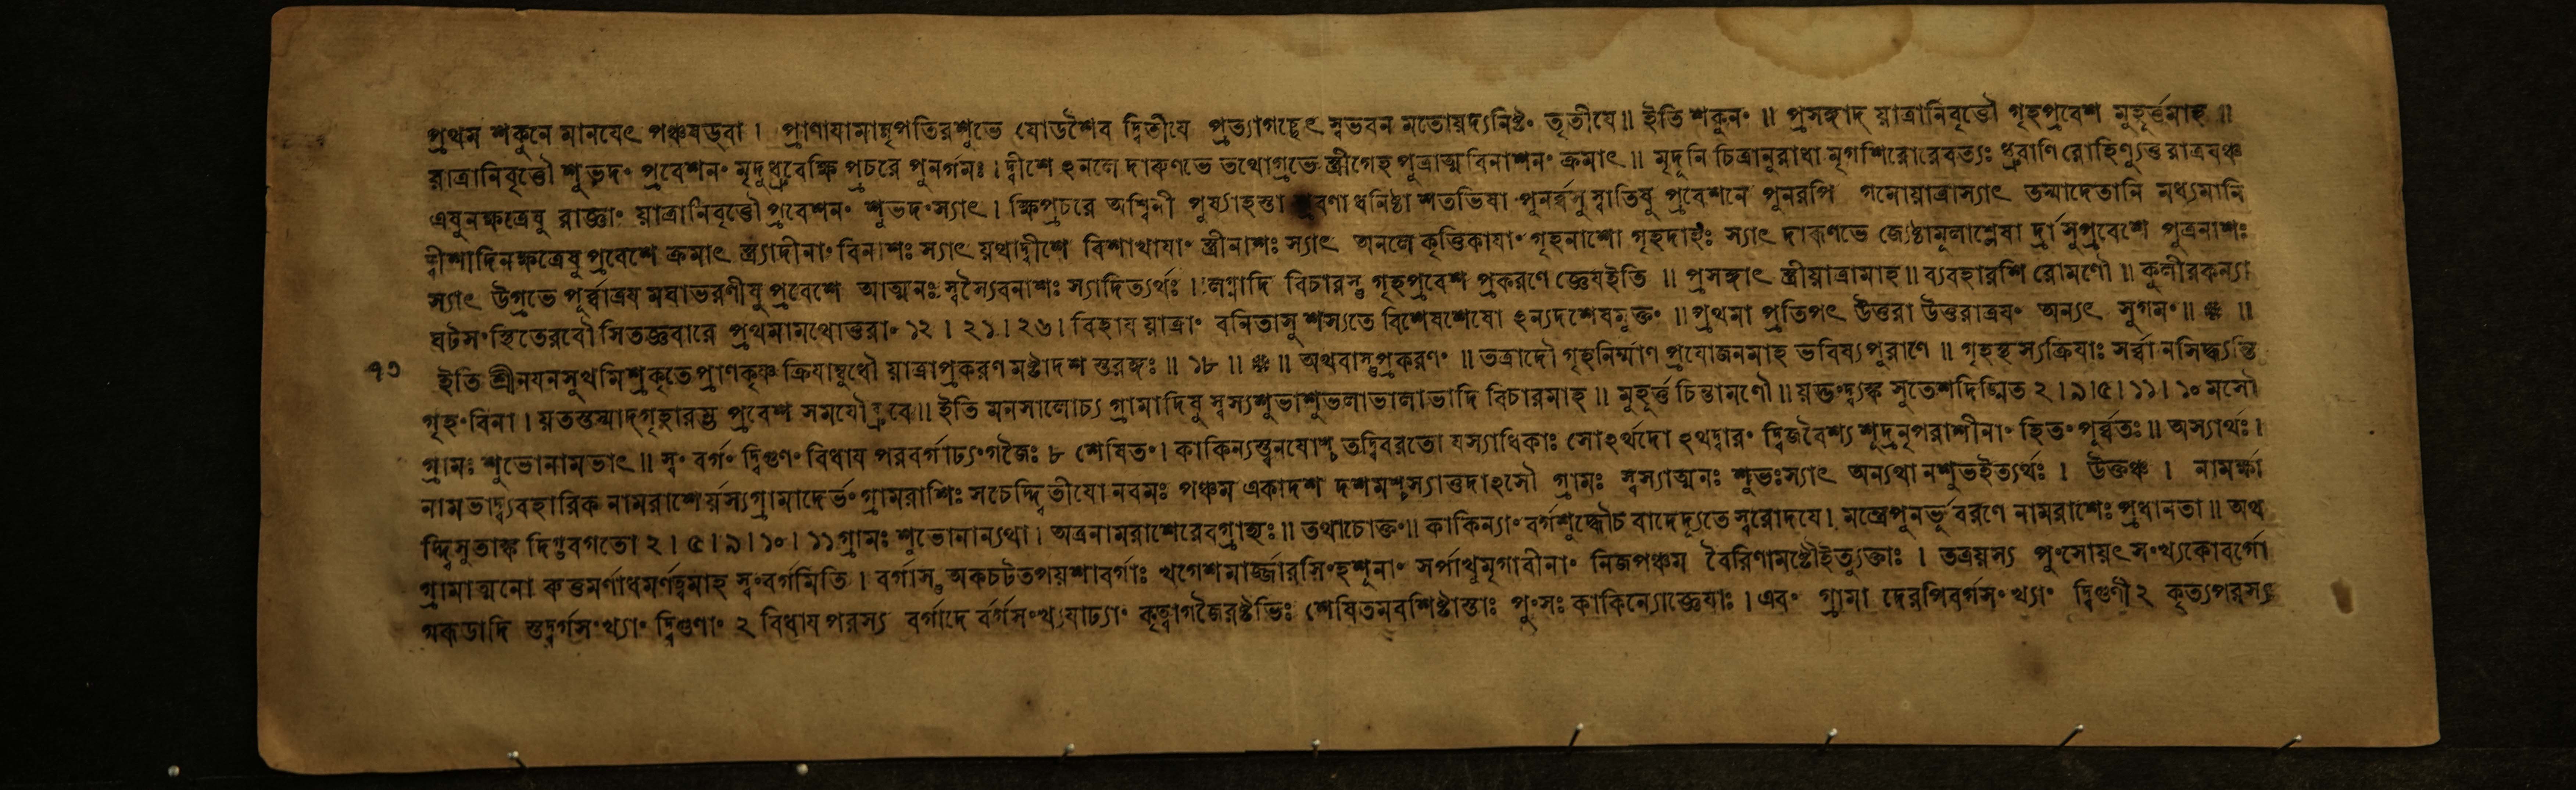 প্রথম শকুনে মানযেৎ পঞ্চষড্বা । প্রাণাযামান্নৃপতিরশুভে ষোডশৈব দ্বিতীযে প্রত্যাগচ্ছেৎ স্বভবন মতোয়দ্যনিষ্টং তৃতীযে॥ ইতি শকুনং ॥ প্রসঙ্গাদ য়াত্রানিবৃত্তৌ গৃহপ্রবেশ মুহূর্ত্তমাহ ॥
য়াত্রানিবৃত্তৌ শুভদং প্রবেশনং মৃদুধ্রুবেক্ষি প্রচরে পুনর্গমঃ । দ্বীশে ঽনলে দারুণভে তথোগ্রভে স্ত্রীগেহ পুত্রাত্মবিনাশনং ক্রমাৎ ॥ মৃদূনি চিত্রানুরাধা মৃগশিরোরেবত্যঃ ধ্রুবাণি রোহিণ্যুত্ত রাত্রযঞ্চ
এষুনক্ষত্রেষু রাজ্ঞাং য়াত্রানিবৃত্তৌ প্রবেশনং শুভদংস্যাৎ । ক্ষিপ্রচরে অশ্বিনী পুষ্যাহস্তা শ্রবণা ধনিষ্ঠা শতভিষা পুনর্ব্বসু স্বাতিষু প্রবেশনে পুনরপি গমোয়াত্রাস্যাৎ তস্মাদেতানি মধ্যমানি
দ্বীশাদিনক্ষত্রেষু প্রবেশে ক্রমাৎ স্ত্র্যাদীনাং বিনাশঃ স্যাৎ য়থাদ্বীশে বিশাখাযাং স্ত্রীনাশঃ স্যাৎ অনলে কৃত্তিকাযাং গৃহনাশো গৃহদাহঃ স্যাৎ দারুণভে জ্যেষ্ঠামূলাশ্লেষা র্দ্রাসুপ্রবেশে পুত্রনাশঃ
স্যাৎ উগ্রভে পূর্ব্বাত্রয মঘাভরণীষু প্রবেশে আত্মনঃ স্বস্যৈবনাশঃ স্যাদিত্যর্থঃ । লগ্নাদি বিচারস্তু গৃহপ্রবেশ প্রকরণে জ্ঞেযইতি ॥ প্রসঙ্গাৎ স্ত্রীয়াত্রামাহ॥ ব্যবহারশি রোমণৌ ॥ কুলীরকন্যা
ঘটসংস্থিতেরবৌ সিতজ্ঞবারে প্রথমামথোত্তরাং ১২ । ২১ । ২৬ । বিহায যাত্রাং বনিতাসু শস্যতে বিশেষশেষো ঽন্যদশেষমুক্তং ॥ প্রথমা প্রতিপৎ উত্তরা উত্তরাত্রযং অন্যৎ সুগমং ॥ ❈ ॥
৭৩ ইতি শ্রীনযনসুখমিশ্রকৃতে প্রাণকৃষ্ণ ক্রিযাম্বুধৌ য়াত্রাপ্রকরণ মষ্টাদশ স্তরঙ্গঃ ॥ ১৮ ॥ ❈ ॥ অথবাস্তুপ্রকরণং ॥ তত্রাদৌ গৃহনির্ম্মাণ প্রযোজনমাহ ভবিষ্যপুরাণে ॥ গৃহস্থ স্যক্রিযাঃ সর্ব্বা নসিদ্ধ্যন্তি
গৃহংবিনা । য়তস্তস্মাদ্গৃহারম্ভ প্রবেশ সমযৌ ব্রুবে॥ ইতি মনসালোচ্য গ্রামাদিষু স্বস্যশুভাশুভলাভালাভাদি বিচারমাহ ॥ মুহূর্ত্ত চিন্তামণৌ ॥ য়দ্ভংদ্ব্যঙ্ক সুতেশদিঙ্মিত ২ । ৯।৫। ১১। ১০ মসৌ
গ্রামঃ শুভোনামভাৎ ॥ স্বং বর্গং দ্বিগুণং বিধায পরবর্গাঢ্যংগজৈঃ ৮ শেষিতং । কাকিন্যস্ত্বনযোশ্চ তদ্বিবরতো যস্যাধিকাঃ সোঽর্থদো ঽথদ্বারং দ্বিজবৈশ্য শূদ্রনৃপরাশীনাং হিতং পূর্ব্বতঃ ॥ অস্যার্থঃ ।
নামভাদ্ব্যবহারিক নামরাশের্য়স্যগ্রামাদের্ভং গ্রামরাশিঃ সচেদ্দ্বিতীযো নবমঃ পঞ্চম একাদশ দশমশ্চস্যাত্তদাঽসৌ গ্রামঃ স্বস্যাত্মনঃ শুভঃস্যাৎ অন্যথা নশুভইত্যর্থঃ । উক্তঞ্চ । নামর্ক্ষা
দ্দ্বিসুতাঙ্ক দিগ্ভবগতো ২ । ৫ । ৯ । ১০ । ১১ গ্রামঃ শুভোনান্যথা । অত্রনামরাশেরেবগ্রাহ্যঃ ॥ তথাচোক্তং॥ কাকিন্যাং বর্গশুদ্ধৌচ বাদেদ্যূতে স্বরোদযে । মন্ত্রেপুনর্ভূ বরণে নামরাশেঃ প্রধানতা ॥ অথ
গ্রামাত্মনো রুত্তমর্ণাধমর্ণত্বমাহ স্বংবর্গমিতি । বর্গাস্তু অকচটতপয়শাবর্গাঃ খগেশমার্জ্জারসিংহশুনাং সর্পাখুমৃগাবীনাং নিজপঞ্চম বৈরিণামষ্টৌইত্যুক্তাঃ । তত্রয়স্য পুংসোয়ৎ সংখ্যকোবর্গো
মকডাদি স্তদ্বর্গসংখ্যাং দ্বিগুণাং ২ বিধায পরস্য বর্গাদে র্বর্গসংখ্যযাঢ্যাং কৃত্বাগজৈরষ্টভিঃ শেষিতমবশিষ্টাস্তাঃ পুংসঃ কাকিন্যোজ্ঞেযাঃ । এবং গ্রামা দেরপিবর্গসংখ্যাং দ্বিগুণী ২ কৃত্যপরস্য